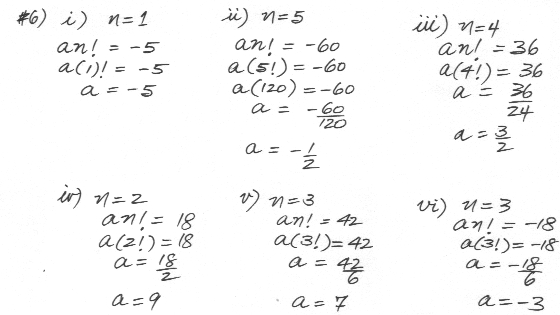 #6) i) n=1
an! = -5
a(1)! = -5
a = -5
ii) n=5
an! = -60
a(5!) = -60
a(120) = -60
a = -60/120
a = -1/2
iii) n=4
an! = 36
a(4!) = 36
a = 36/24
a = 3/2
iv) n=2
an! = 18
a(2!) = 18
a = 18/2
a = 9
v) n=3
an! = 42
a(3!) = 42
a = 42/6
a = 7
vi) n=3
an! = -18
a(3!) = -18
a = -18/6
a = -3